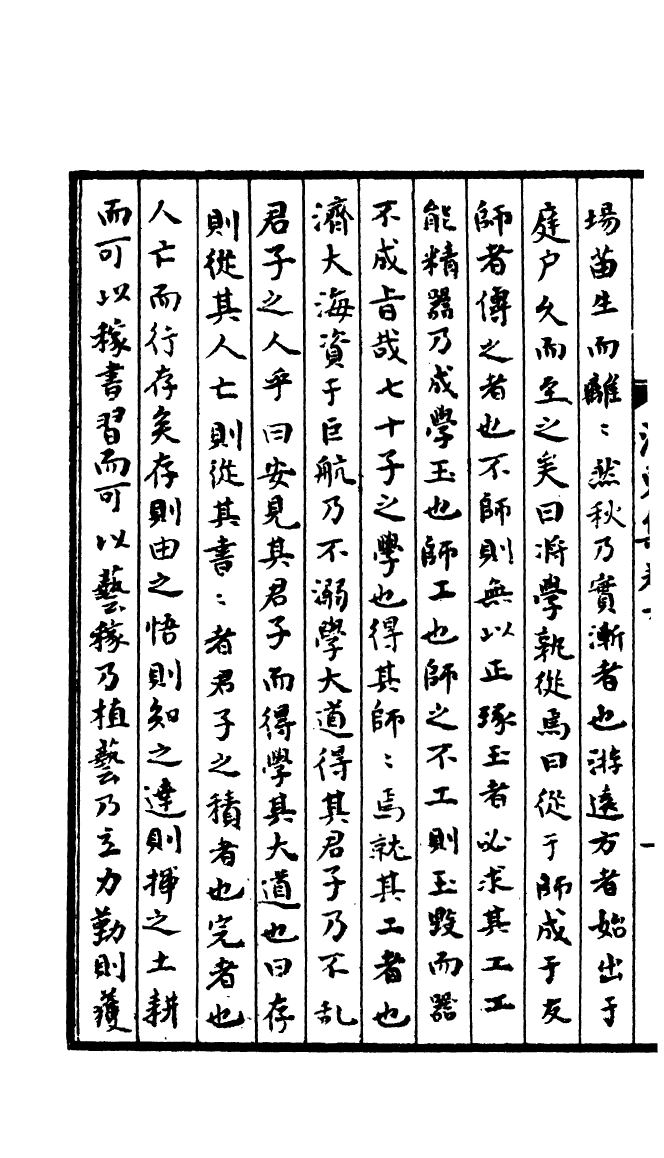 場苗生而離〻然秋乃實漸者也游遠方者始出于
庭户久而至之矣曰將學孰從焉曰從于師成于友
師者傳之者也不師則無以正琢玉者必求其工工
能精器乃成學玉也師工也師之不工則玉毀而器
不成旨哉七十子之學也得其師〻焉就其工者也
濟大海資于巨航乃不溺學大道得其君子乃不乱
君子之人乎曰安見其君子而得學其大道也曰存
則從其人亡則從其書〻者君子之積者也完者也
人亡而行存矣存則由之悟則知之達則揮之土耕
而可以稼書習而可以藝稼乃植藝乃立力勤則獲